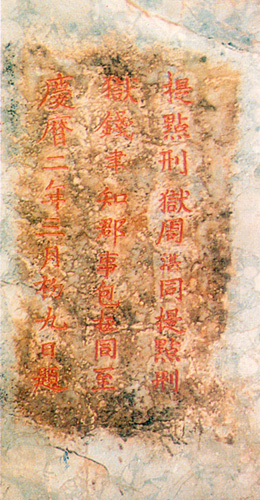 提點刑獄周湛同提點刑
獄錢聿知郡事包拯同至
慶曆二年三月初九日題